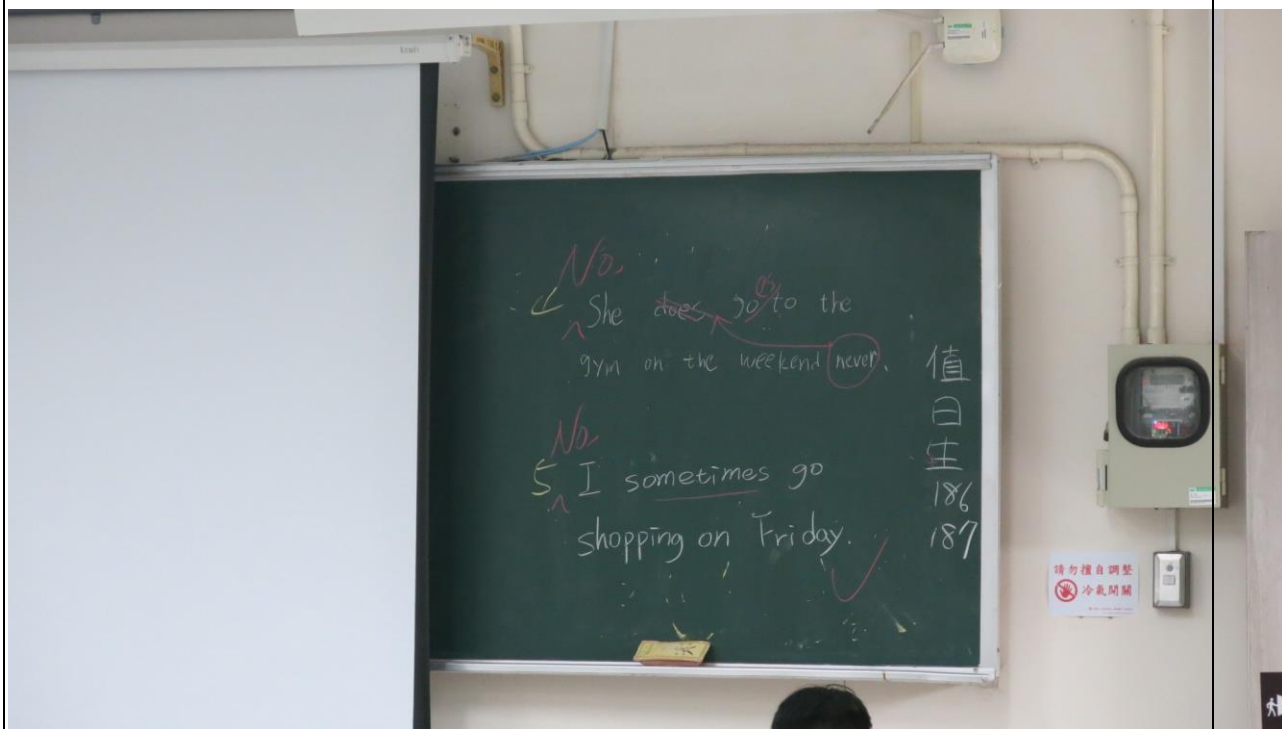 No,
4 She does go es to the
gym on the weekend never.
No,
5 I sometimes go
shopping on Friday.
值日生
186
187
請勿擅自調整
冷氣開關